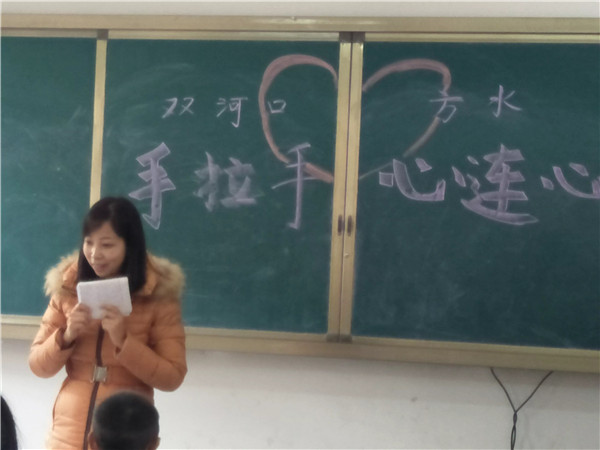 双河口 方水
手拉手 心连心